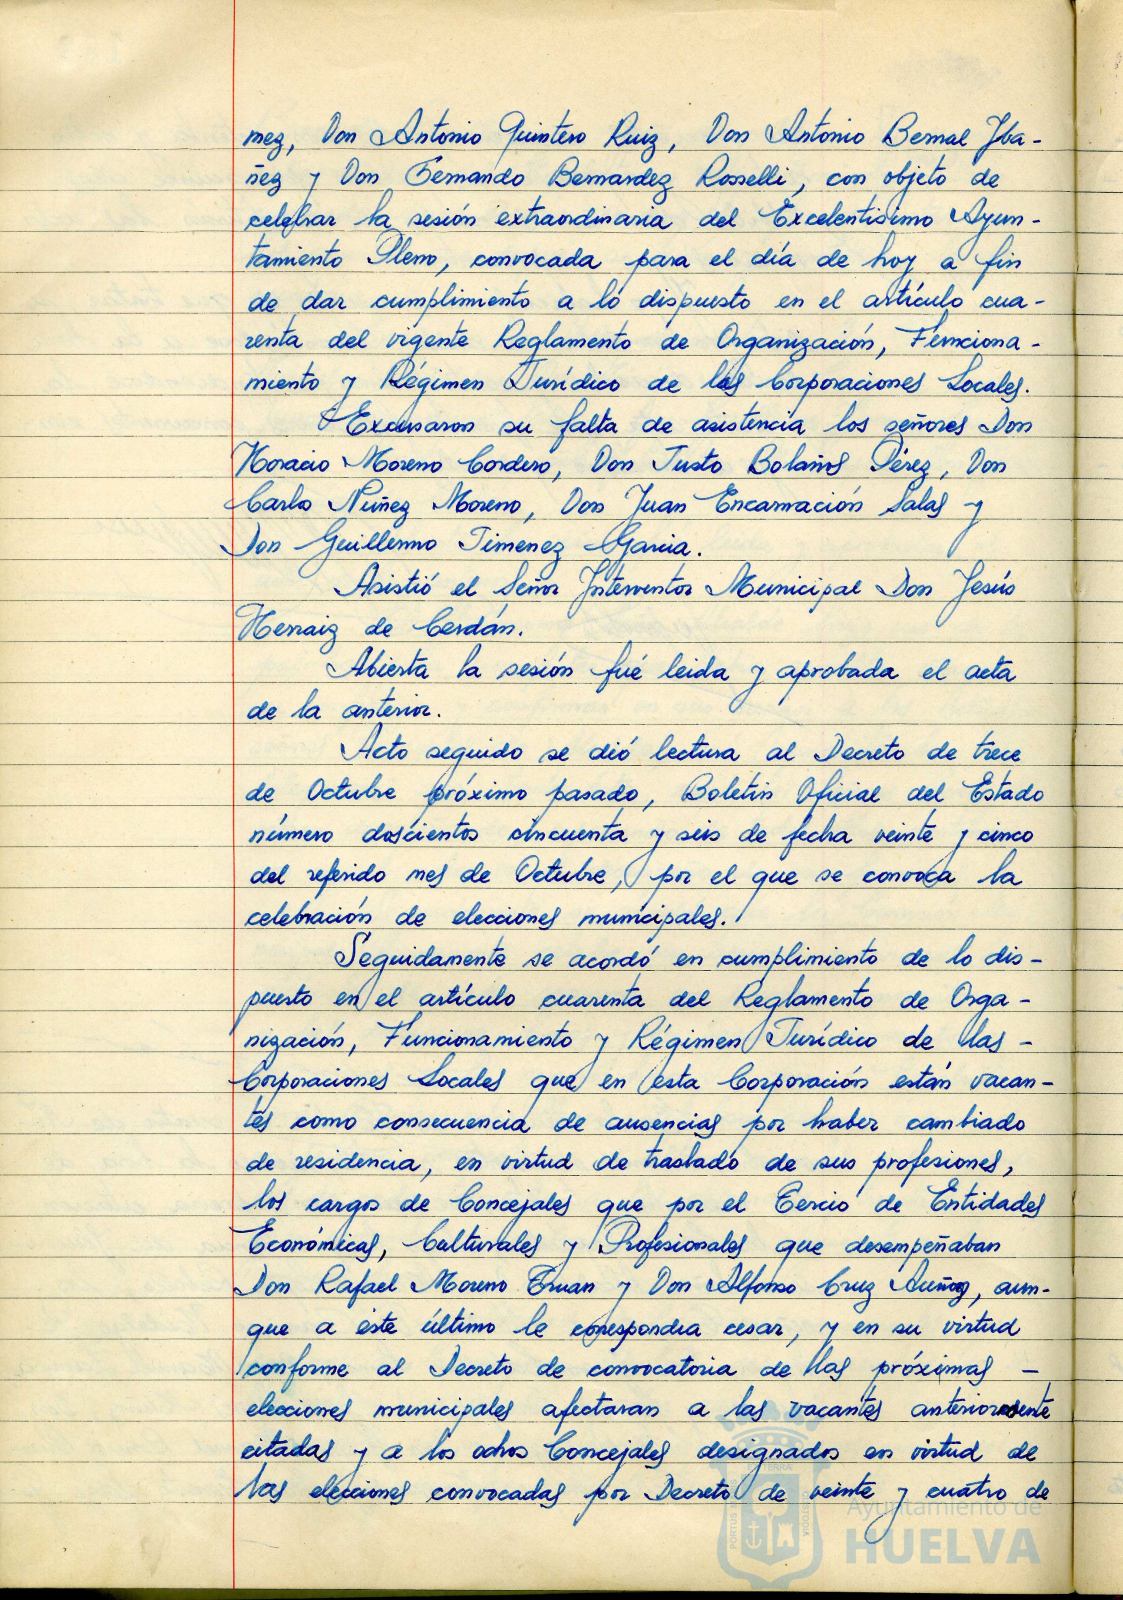 mez, Don Antonio Quintero Ruiz, Don Antonio Bernal Yba-
ñez y Don Fernando Bernardez Rosselli, con objeto de
celebrar la sesión extraordinaria del Excelentisimo Ayun-
tamiento Pleno, convocada para el día de hoy a fin
de dar cumplimiento a lo dispuesto en el artículo cua-
renta del vigente Reglamento de Organización, Funciona-
miento y Régimen Jurídico de las Corporaciones Locales.
Excusaron su falta de asistencia los señores Don
Horacio Moreno Cordero, Don Justo Bolaños Pérez, Don
Carlo Nuñez Moreno, Don Juan Encarnación Salas y
Don Guillermo Jimenez Garcia.
Asistió el Señor Interventor Municipal Don Jesús
Herraiz de Cerdán.
Abierta la sesión fué leida y aprobada el acta
de la anterior.
Acto seguido se dió lectura al Decreto de trece
de Octubre próximo pasado, Boletin Oficial del Estado
número doscientos cincuenta y seis de fecha veinte y cinco
del referido mes de Octubre, por el que se convoca la
celebración de elecciones municipales.
Seguidamente se acordó en cumplimiento de lo dis-
puesto en el artículo cuarenta del Reglamento de Orga-
nización, Funcionamiento y Régimen Jurídico de las -
Corporaciones Locales que en esta Corporación están vacan-
tes como consecuencia de ausencias por haber cambiado
de residencia, en virtud de traslado de sus profesiones,
los cargos de Concejales que por el Tercio de Entidades
Económicas, Culturales y Profesionales que desempeñaban
Don Rafael Moreno Truan y Don Alfonso Cruz, aun-
que a éste último le correspondia cesar, y en su virtud
conforme al Decreto de convocatoria de las próximas -
elecciones municipales afectaran a las vacantes anteriormente
citadas y a los ochos Concejales designados en virtud de
las elecciones convocadas por Decreto de veinte y cuatro de
Ayuntamiento de
HUELVA